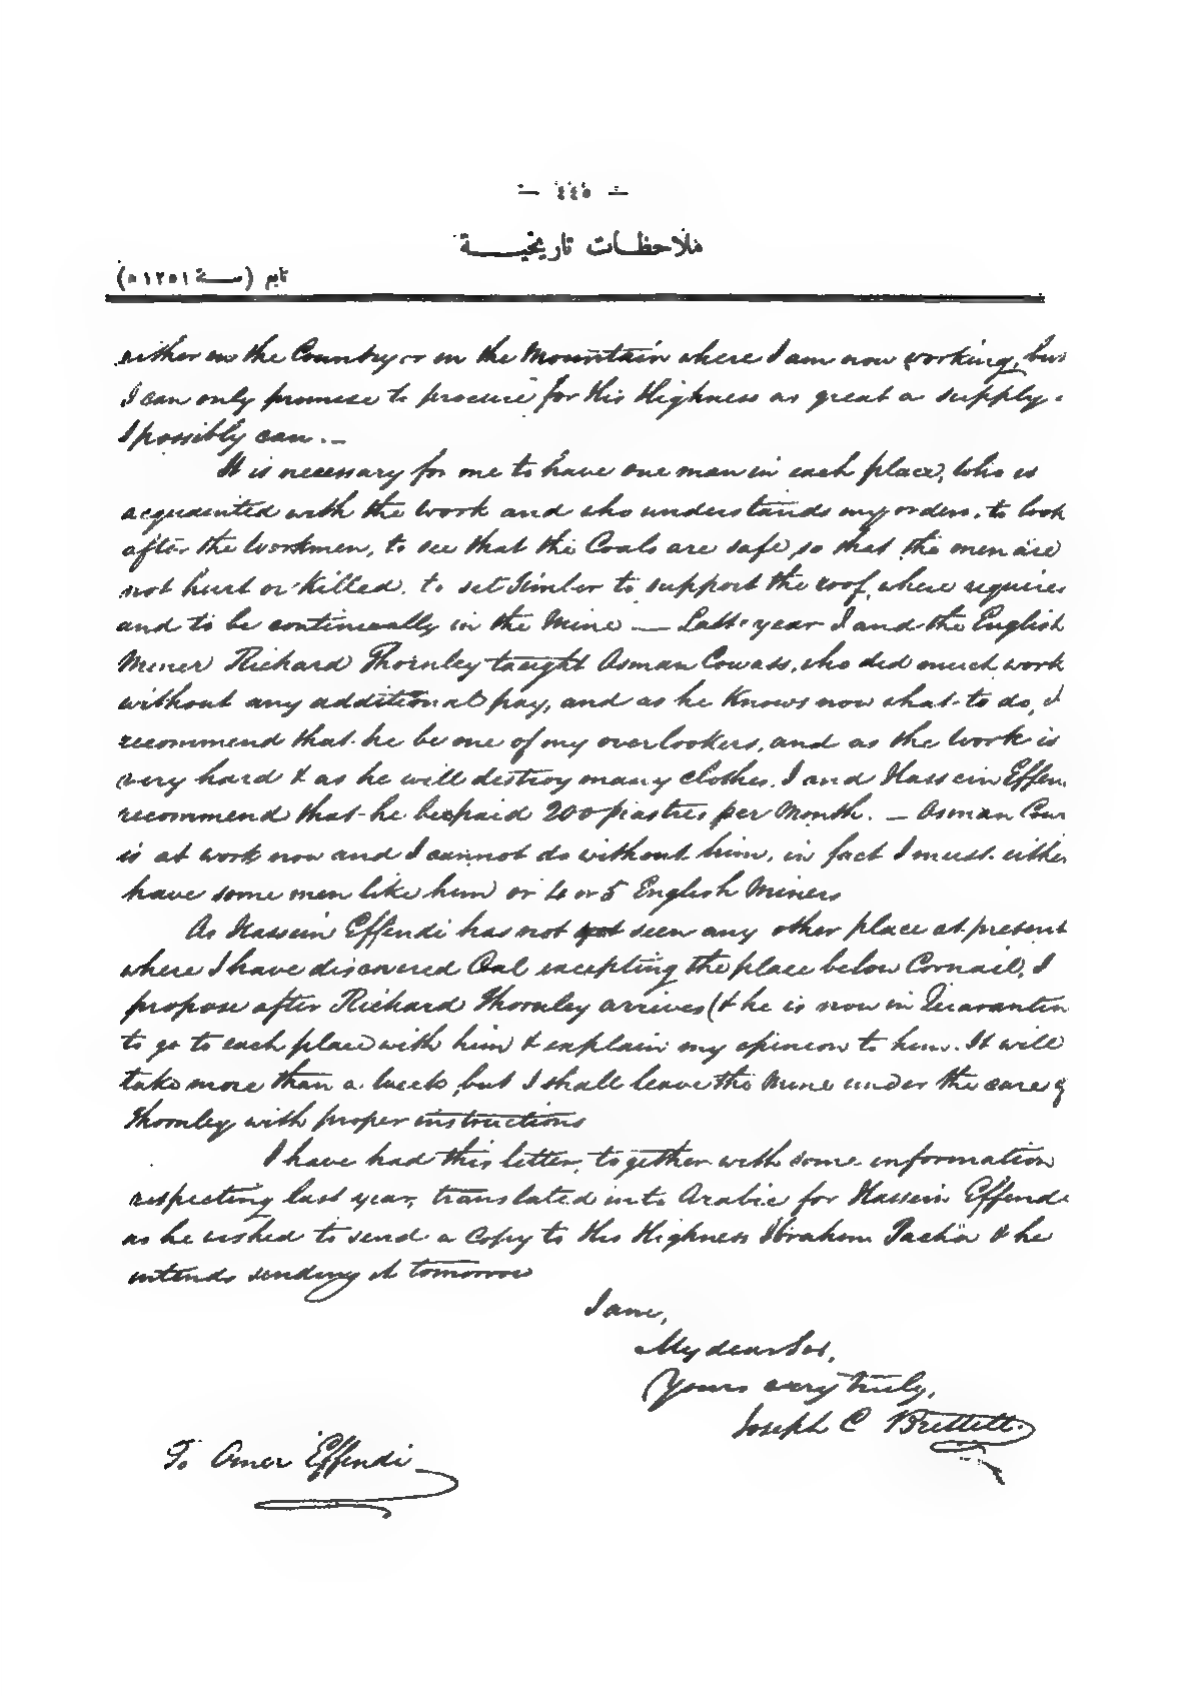 — ٤٤٥ —
ملاحظات تاريخية
تابع (سنة ١٢٥١ ه)
either in the Country or in the Mountain where I am now working, but
I can only promise to procure for His Highness as great a supply
I possibly can. —
It is necessary for me to have one man in each place, who is
acquainted with the work and who understands my orders. to look
after the Workmen, to see that the Coals are safe, so that the men are
not hurt or killed. to set Timber to support the roof, where requires
and to be continually in the Mine — Last year I and the English
Miner Richard Thornley taught Osman Cowass, who did much work
without any additional pay, and as he knows now what to do, I
recommend that he be one of my overlookers, and as the work is
very hard & as he will destroy many clothes. I and Hassein Effen
recommend that he be paid 200 piastres per Month. — Osman Cow
is at work now and I cannot do without him, in fact I must eithe
have some men like him or 4 or 5 English Miners
As Hassein Effendi has not yet seen any other place at present
where I have discovered Coal excepting the place below Cornail, I
propose after Richard Thornley arrives (& he is now in Quarantin
to go to each place with him & explain my opinion to him. It will
take more than a week, but I shall leave the Mine under the care of
Thornley with proper instructions
I have had this letter, together with some information
respecting last year, translated into Arabic for Hassein Effendi
as he wished to send a Copy to His Highness Ibrahim Pacha & he
intends sending it tomorrow
I am,
My dear Sir,
Yours very truly,
Joseph C Brettell.
To Omer Effendi